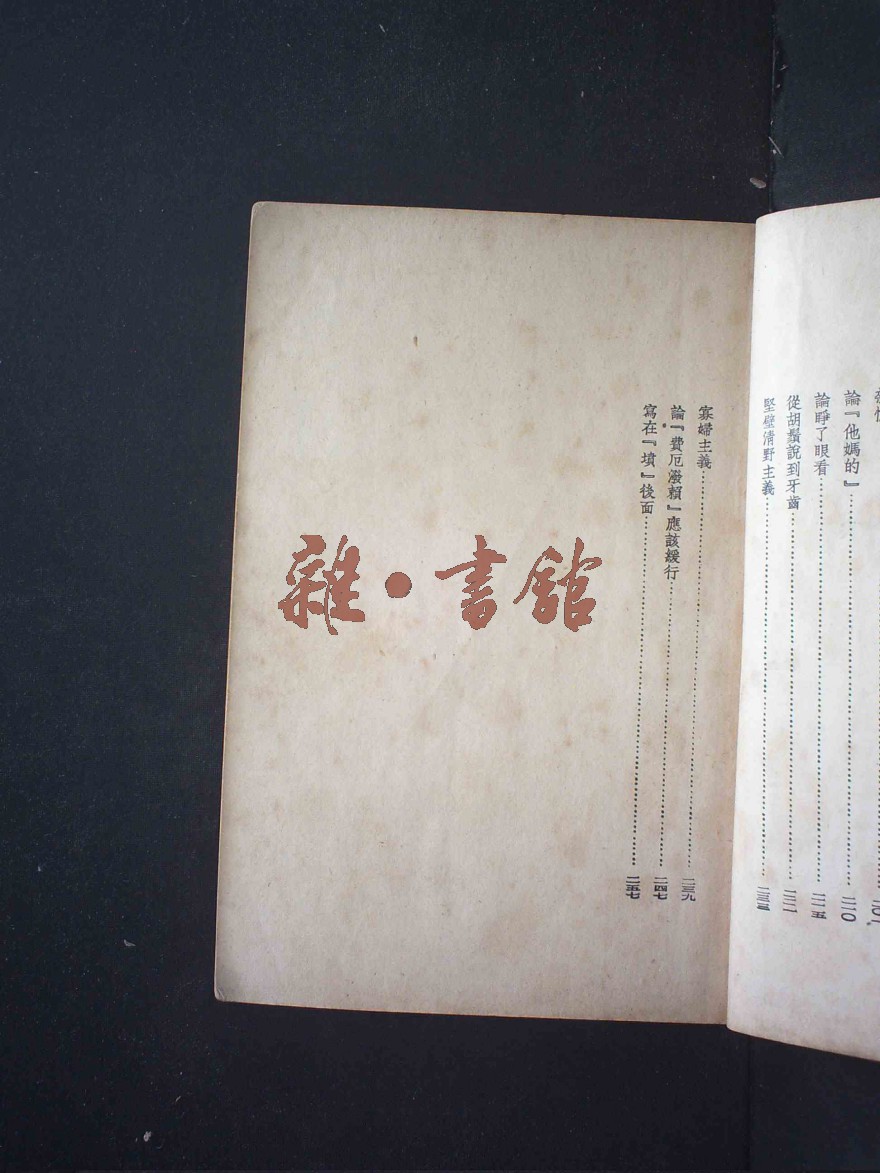 論『他媽的』……二一〇
論睜了眼看……二一五
從胡鬚說到牙齒……二二一
堅壁清野主義……二三三
寡婦主義……二三九
論『費厄潑賴』應該緩行……二四七
寫在『墳』後面……二五七
雜·書館